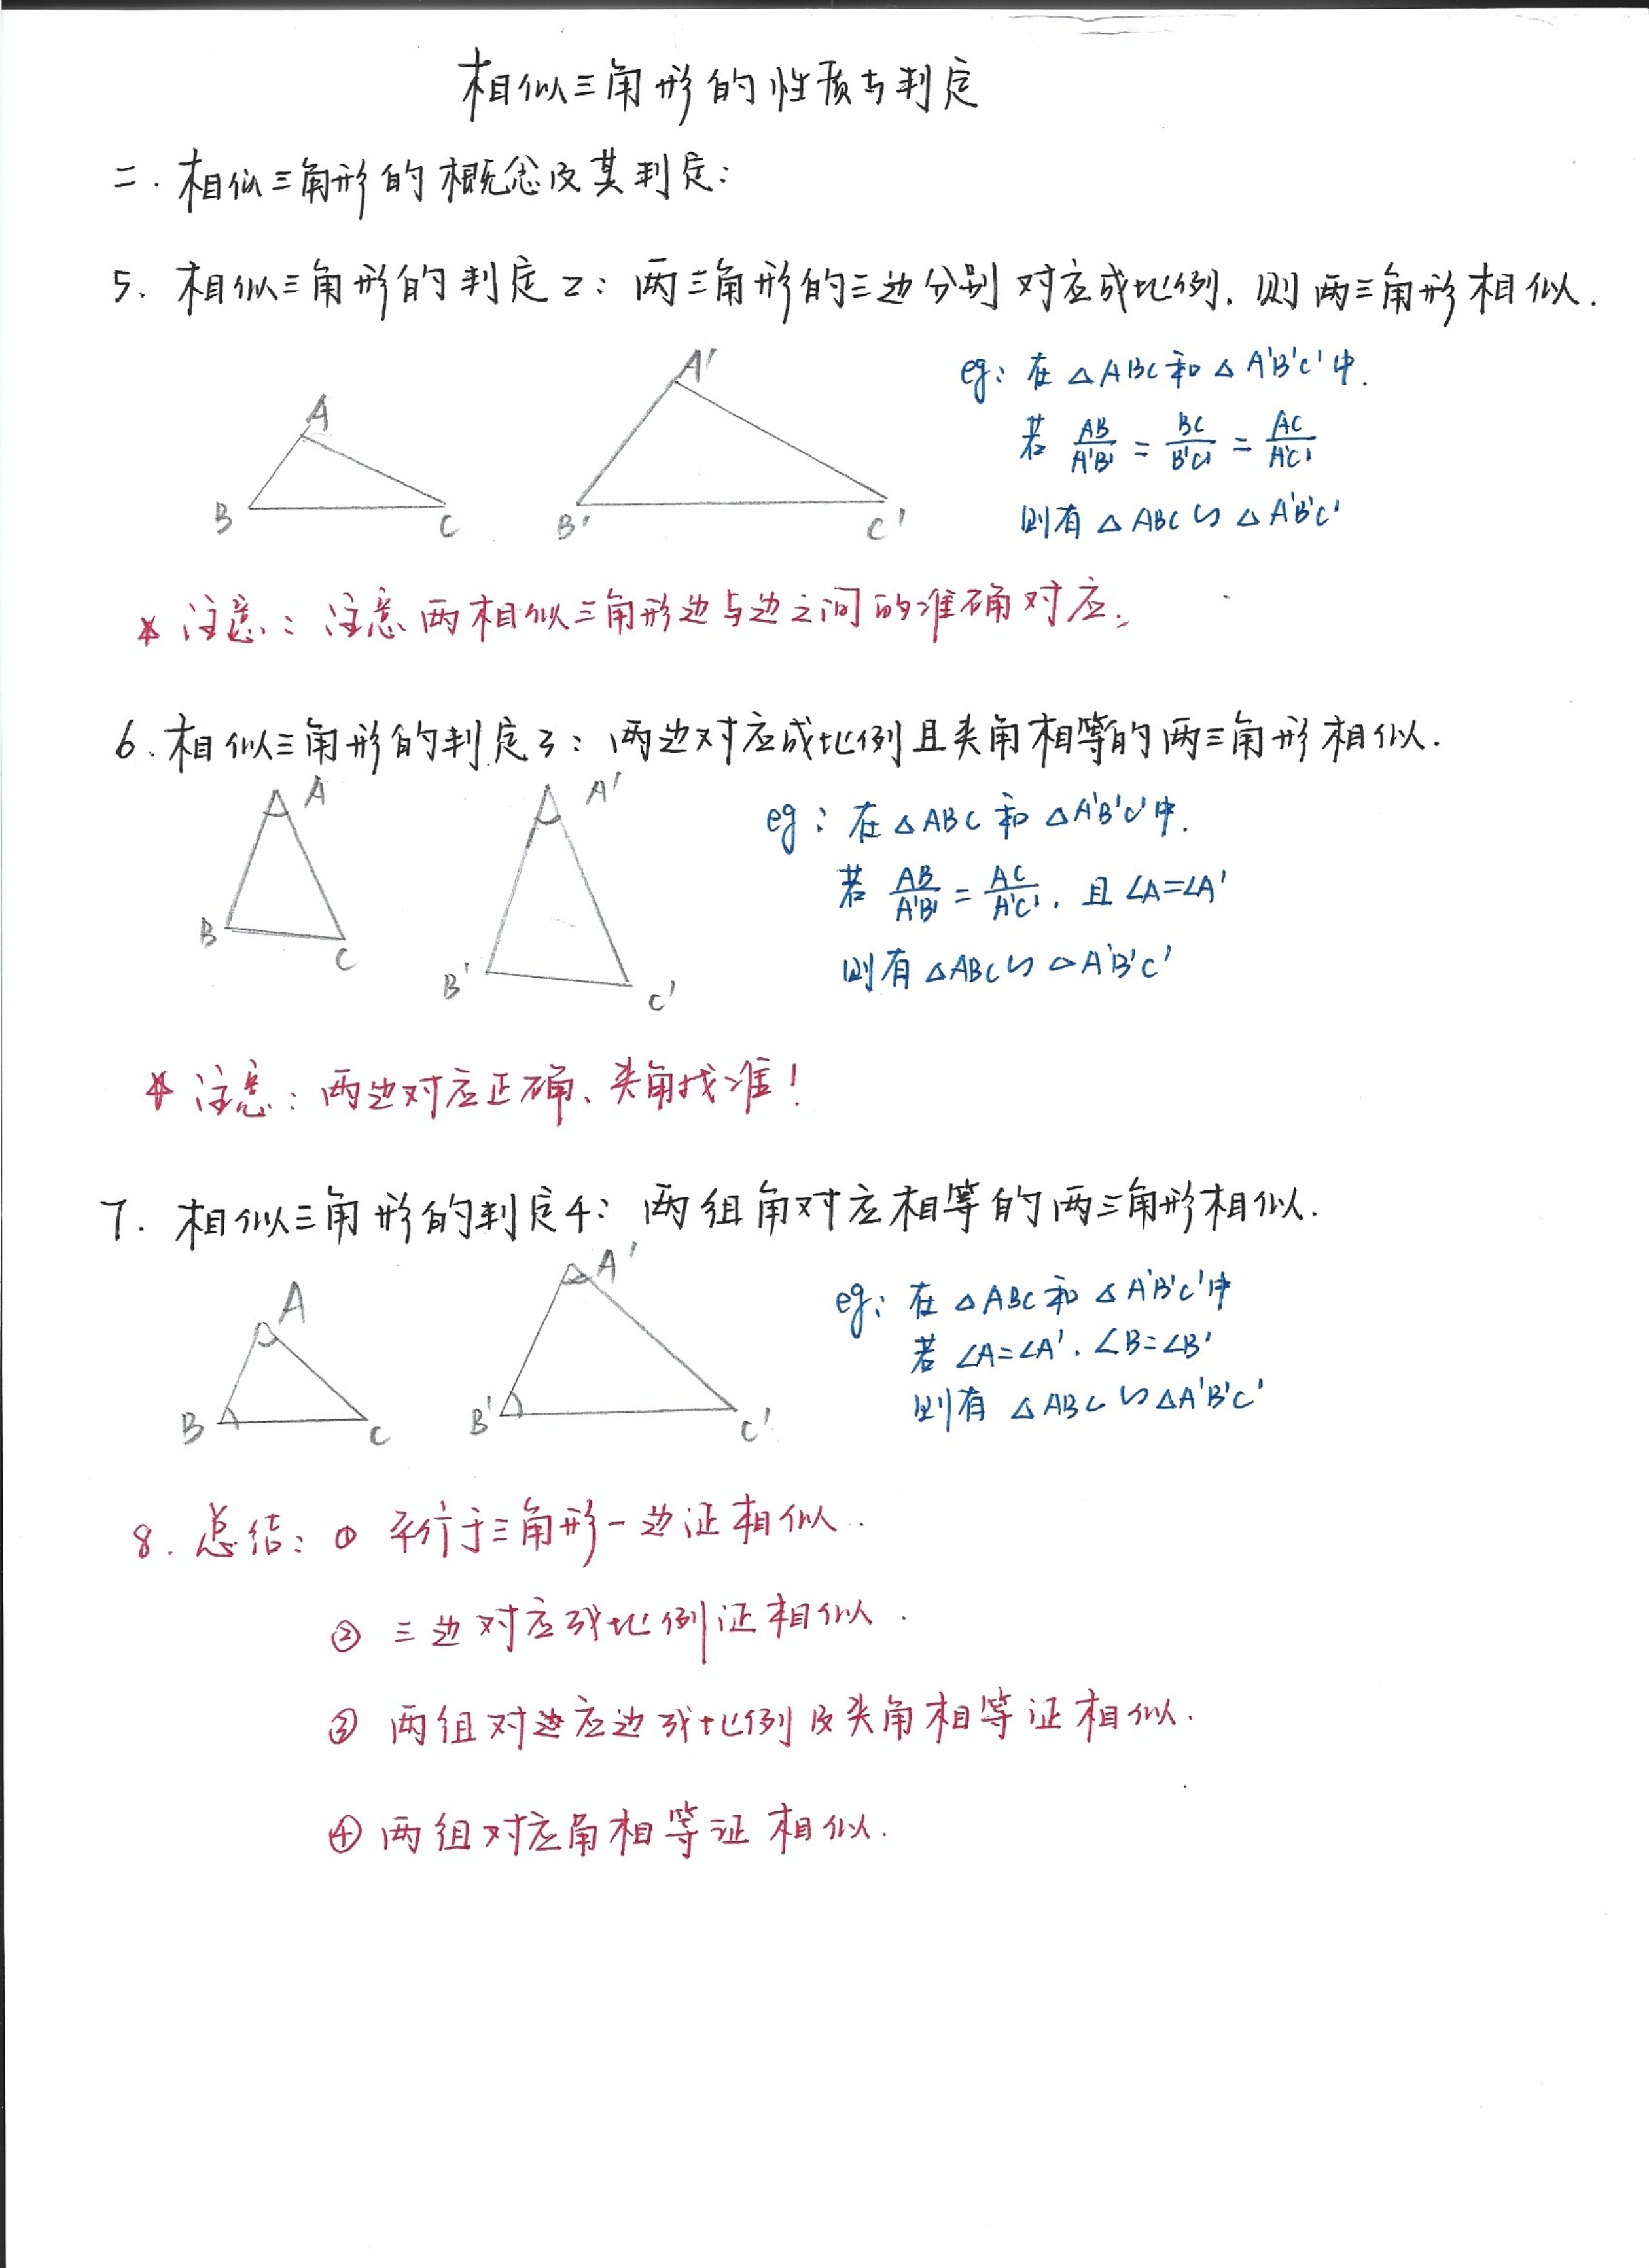 相似三角形的性质与判定
二.相似三角形的概念及其判定:
5.相似三角形的判定2:两三角形的三边分别对应成比例.则两三角形相似.
A
A'
B
C
B'
C'
eg:在△ABC和△A'B'C'中.
若 AB/A'B' = BC/B'C' = AC/A'C'
则有△ABC∽△A'B'C'
*注意:注意两相似三角形边与边之间的准确对应.
6.相似三角形的判定3:两边对应成比例且夹角相等的两三角形相似.
A
A'
B
C
B'
C'
eg:在△ABC和△A'B'C'中.
若 AB/A'B' = AC/A'C'. 且∠A=∠A'
则有△ABC∽△A'B'C'
*注意:两边对应正确、夹角找准!
7.相似三角形的判定4:两组角对应相等的两三角形相似.
A
A'
B
C
B'
C'
eg:在△ABC和△A'B'C'中
若∠A=∠A'.∠B=∠B'
则有△ABC∽△A'B'C'
8.总结:① 平行于三角形一边证相似.
② 三边对应成比例证相似.
③ 两组对应边成比例及夹角相等证相似.
④ 两组对应角相等证相似.